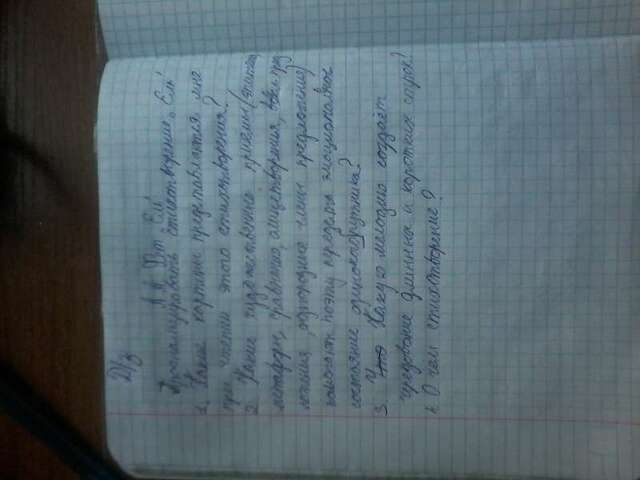 Д/з
А.А. Фет „Ель"
Проанализировать стихотворение „Ель"
1. Какие картины представляются мне
при чтении этого стихотворения?
2. Какие художественные приёмы (эпитеты,
метафоры, сравнения, олицетворения, предложения
ложения, однородные члены предложения)
помогают поэту передать эмоциональное
состояние одинокого путника?
3. Что Какую мелодию создаёт
чередование длинных и коротких строк?
4. О чём стихотворение?